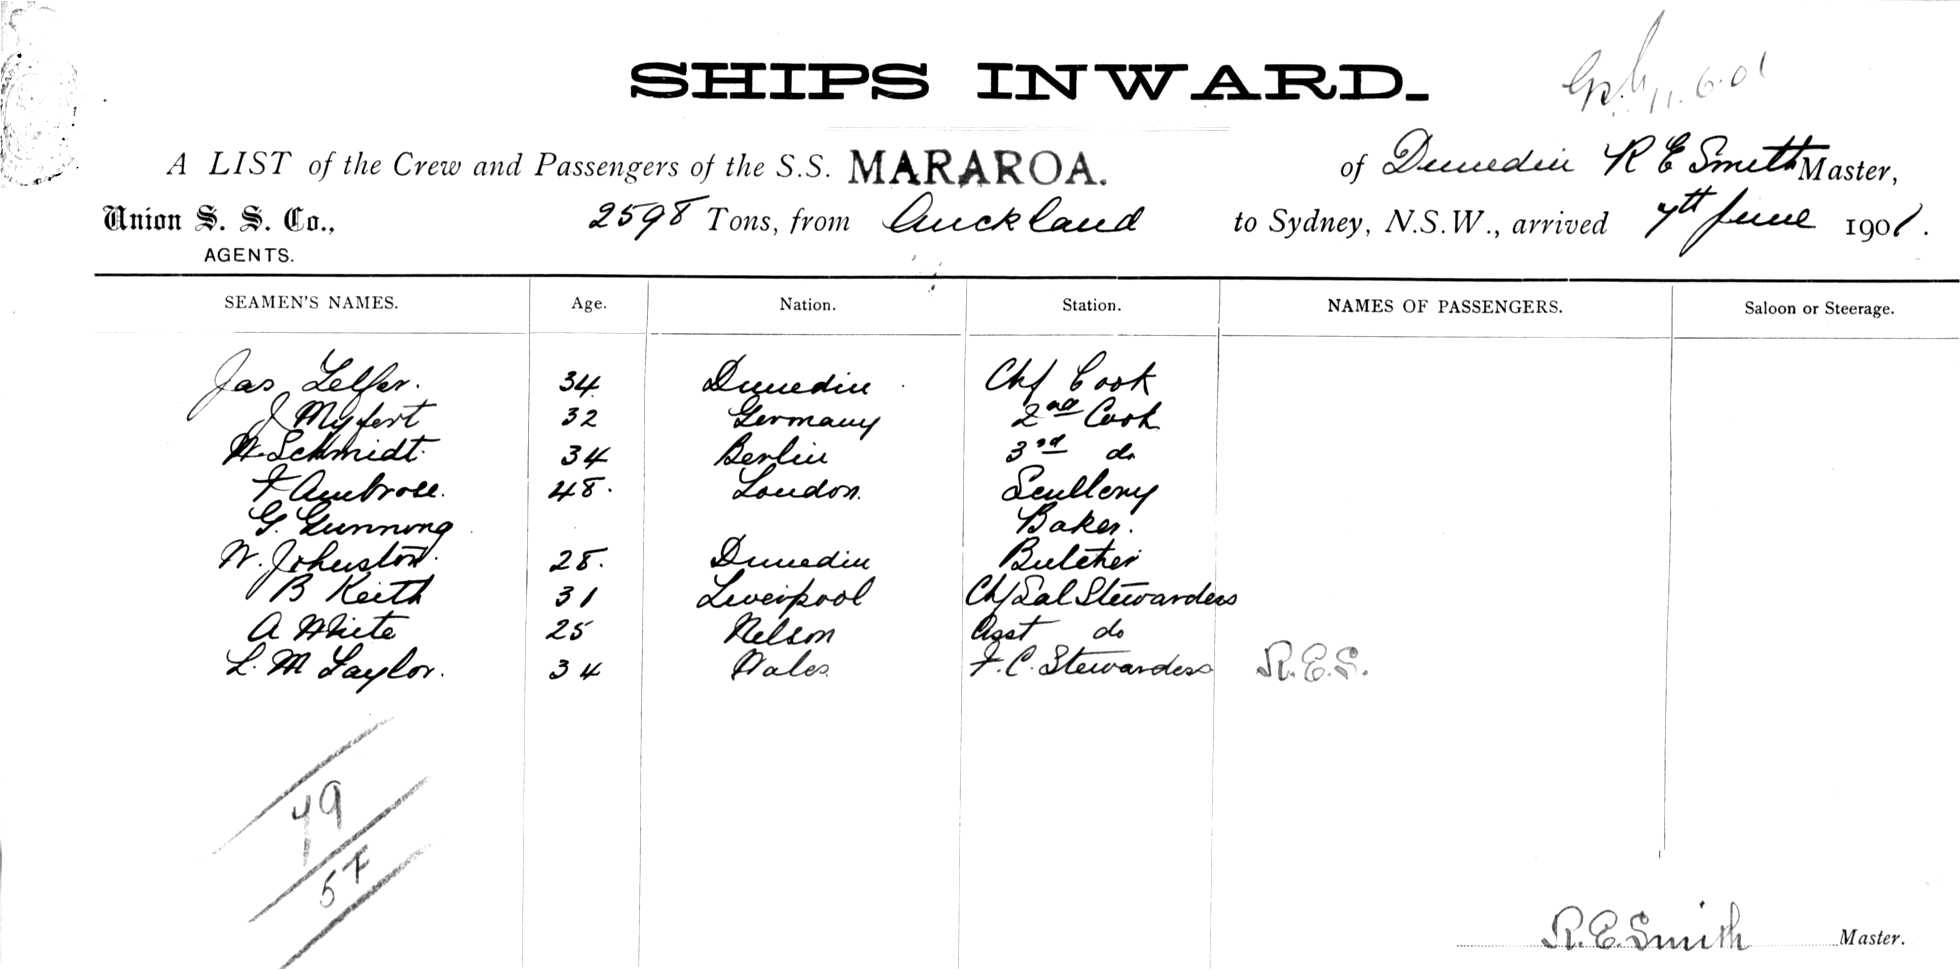 SHIPS INWARD.
11.6.01
A LIST of the Crew and Passengers of the S.S. MARAROA. of Dunedin R E Smith Master,
Union S. S. Co., 2598 Tons, from Auckland to Sydney, N.S.W., arrived 7th June 1901.
AGENTS.
SEAMEN'S NAMES. Age. Nation. Station. NAMES OF PASSENGERS. Saloon or Steerage.
Jas Telfer. 34 Dunedin Chf Cook
J 32 Germany 2nd Cook
W. Schmidt. 34 Berlin 3rd do
F Ambrose. 48. London. Scullery
G. Gunning Baker.
W. Johnston. 28. Dunedin Butcher
B Keith 31 Liverpool Chf Sal Stewardess
A White 25 Nelson Asst do
L. M Taylor. 34 Wales F. C. Stewardess R.E.S.
79
57
R.E.Smith Master.